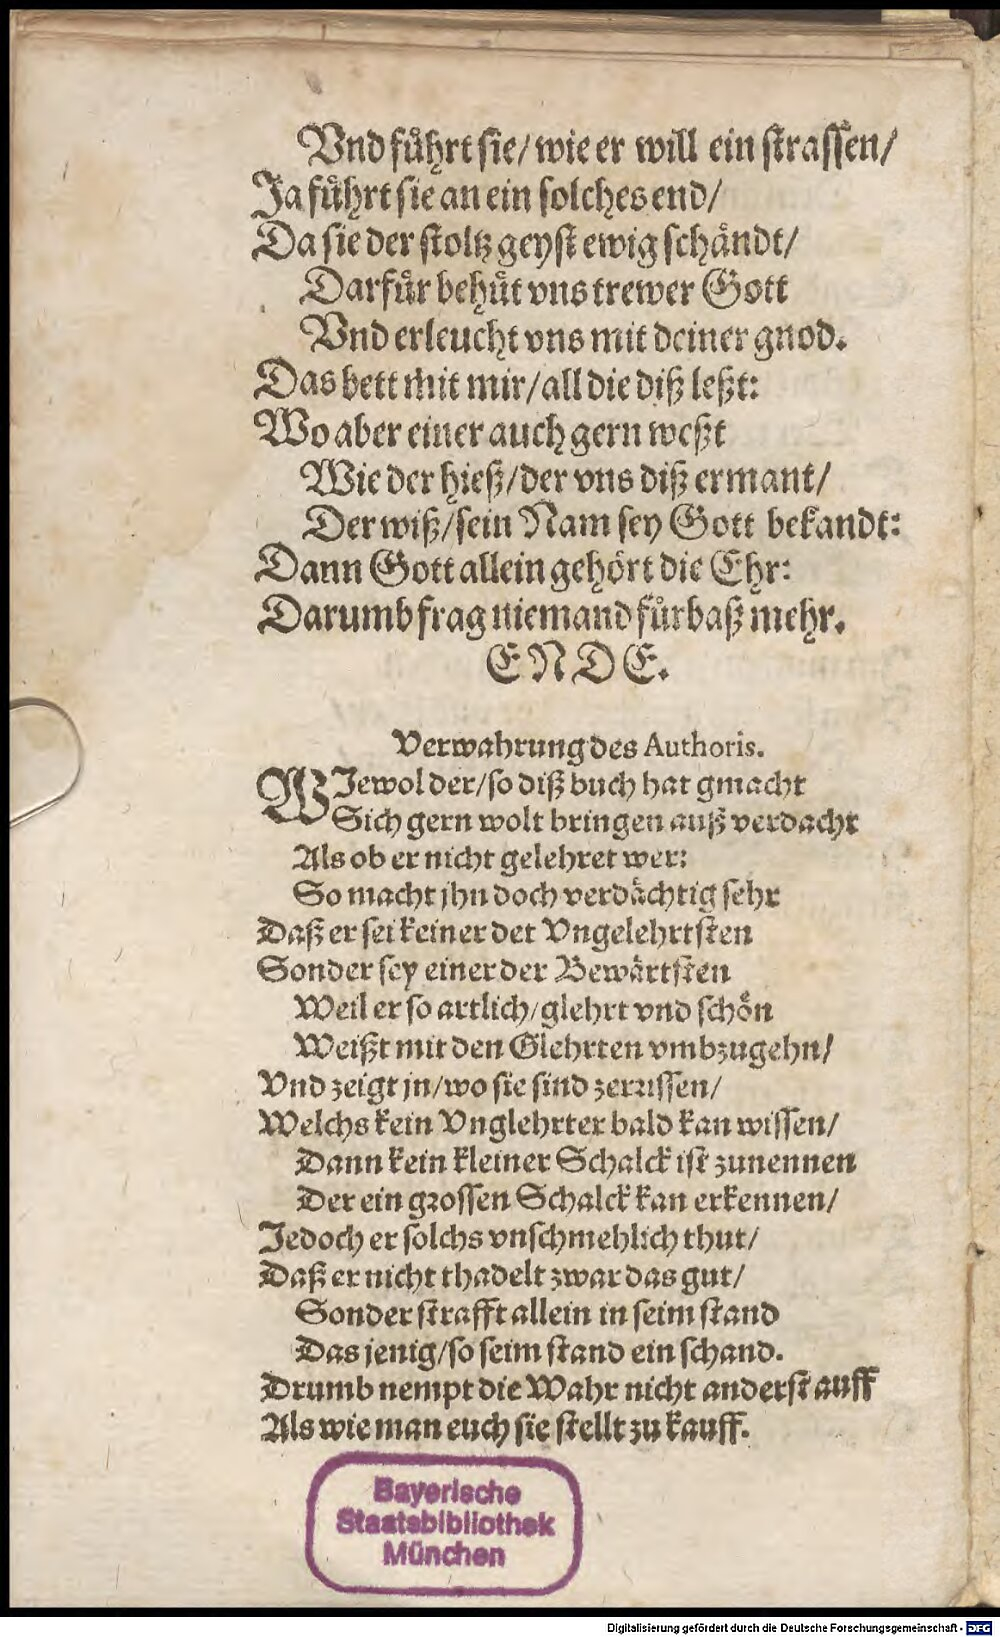 Vnd fuͤhrt sie/ wie er will ein strassen/
Ja fuͤhrt sie an ein solches end/
Da sie der stoltz geyst ewig schaͤndt/
Darfuͤr behuͤt vns trewer Gott
Vnd erleucht vns mit deiner gnod.
Das bett mit mir/ all die diß leßt:
Wo aber einer auch gern weßt
Wie der hieß/ der vns diß ermant/
Der wiß/ sein Nam sey Gott bekandt:
Dann Gott allein gehoͤrt die Ehr:
Darumb frag niemand fuͤrbaß mehr.
ENDE.
Verwahrung des Authoris.
WJewol der/ so diß buch hat gmacht
Sich gern wolt bringen auß verdacht
Als ob er nicht gelehret wer:
So macht jhn doch verdaͤchtig sehr
Daß er sei keiner der Vngelehrtsten
Sonder sey einer der Bewaͤrtsten
Weil er so artlich/ glehrt vnd schoͤn
Weißt mit den Glehrten vmbzugehn/
Vnd zeigt jn/ wo sie sind zerrissen/
Welchs kein Vnglehrter bald kan wissen/
Dann kein kleiner Schalck ist zunennen
Der ein grossen Schalck kan erkennen/
Jedoch er solchs vnschmehlich thut/
Daß er nicht thadelt zwar das gut/
Sonder strafft allein in seim stand
Das jenig/ so seim stand ein schand.
Drumb nempt die Wahr nicht anderst auff
Als wie man euch sie stellt zu kauff.
Bayerische
Staatsbibliothek
München
Digitalisierung gefördert durch die Deutsche Forschungsgemeinschaft - DFG